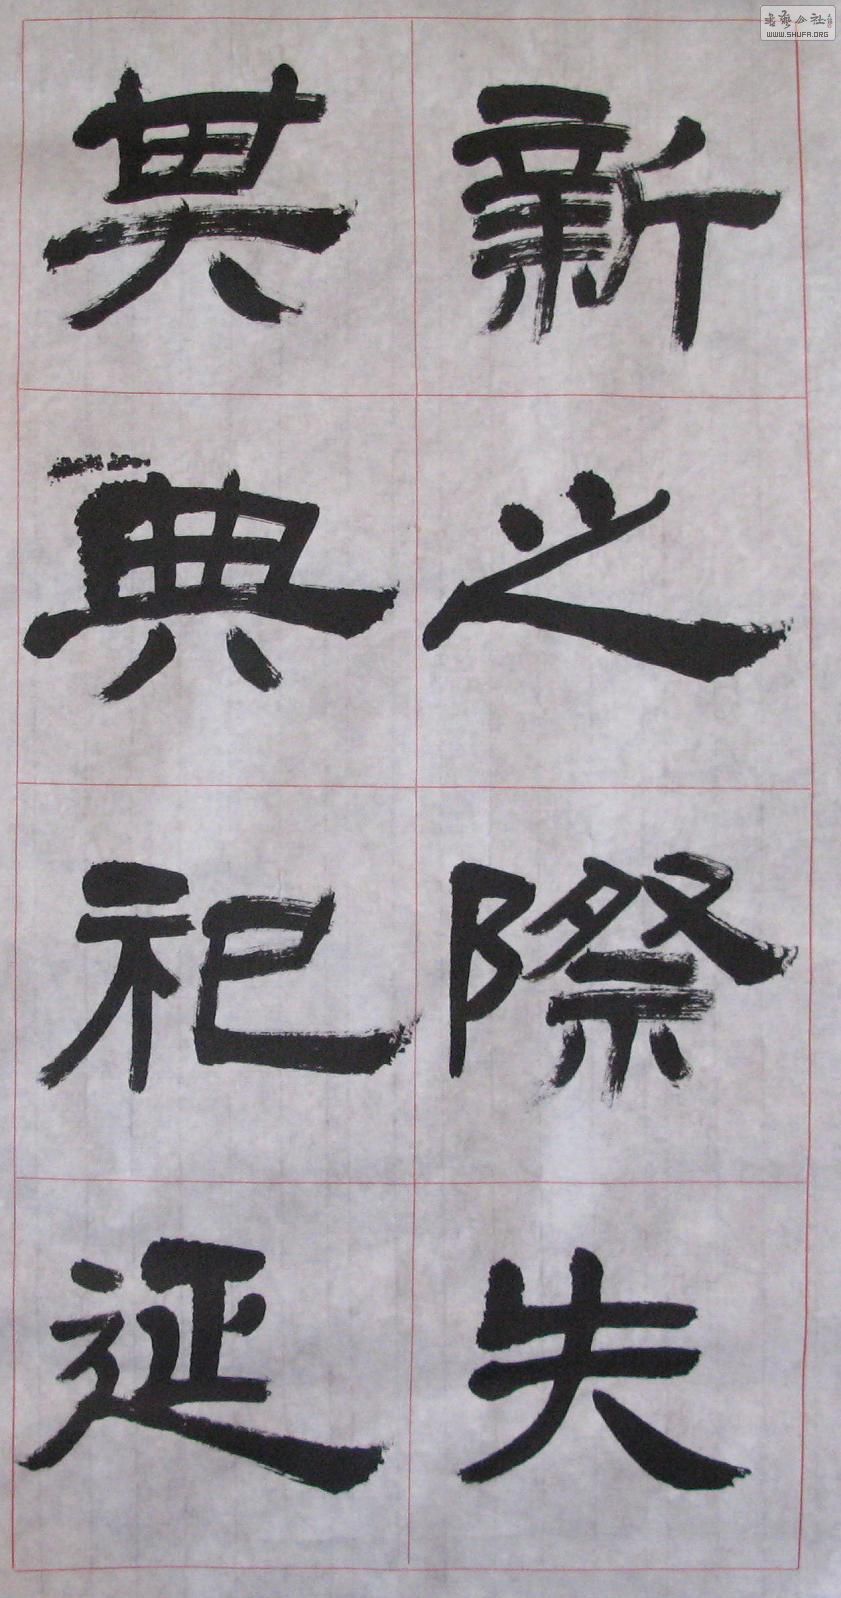 新之際失
其典祀延
书艺公社
WWW.SHUFA.ORG